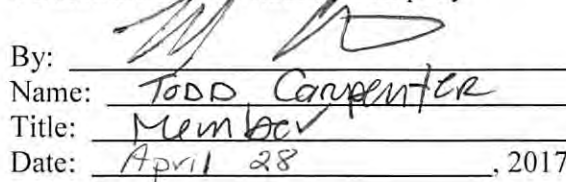 By:
Name: TODD CarpentER
Title: Member
Date: April 28, 2017